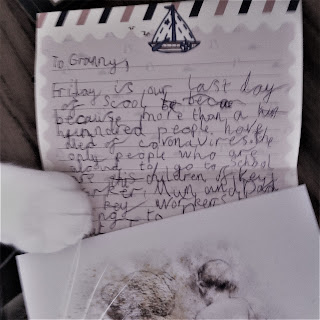 To Granny,
Friday is our last day
of scool to becau
because more than a hun
hunndred people have
died of coronavirus. the
only people who are
alound to go to school
are this children of keys
worker, Mum and Dad
key workers